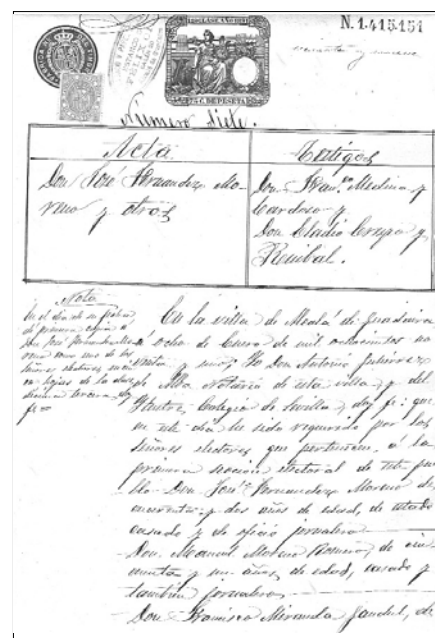 N. 1.415.151
cuarenta y nueve
75 C. DE PESETA
Número siete.
Acta
Testigos
Don José Hernandez Mo-
reno y otros
Don Fran.co Medina y
Cardoso y
Don Cladio Crespo y
Nota
En el dia de su fecha
di primera copia á
Don José Hernandez Mo-
reno como uno de los
Señores electores
En la villa de Alcalá de Guadaira
á ocho de Enero de mil ochocientos no-
venta y uno; Yo Don Antonio Gutierrez
de Alba Notario de esta villa y del
Ilustre Colegio de Sevilla, doy fe: que
en este dia he sido requerido por los
Señores electores que pertenecen á la
primera sección electoral de este pue-
blo Don José Hernandez Moreno de
cincuenta y dos años de edad, de estado
casado y de oficio jornalero
Don Manuel Moreno Romero, de cin-
cuenta y un años, de edad, casado y
tambien jornalero
Don Francisco Miranda de